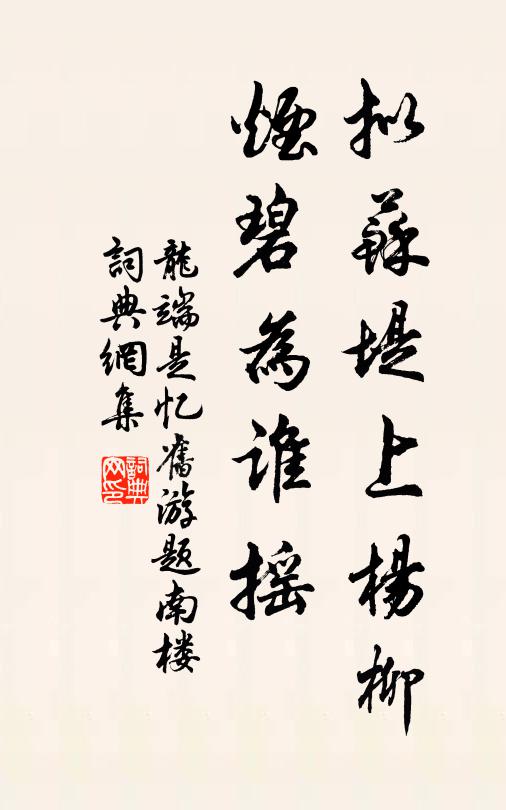 拟蘇堤上楊柳
煙碧為誰摇
龍端是忆舊游题南楼
詞典網集
詞典网印